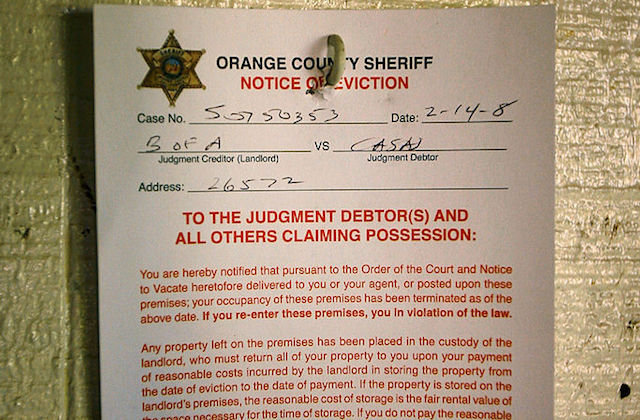 SHERIFF
ORANGE COUNTY SHERIFF
NOTICE OF EVICTION
Case No. Date: 2-14-8
B of A VS
Judgment Creditor (Landlord) Judgment Debtor
Address: 26572
TO THE JUDGMENT DEBTOR(S) AND
ALL OTHERS CLAIMING POSSESSION:
You are hereby notified that pursuant to the Order of the Court and Notice
to Vacate heretofore delivered to you or your agent, or posted upon these
premises; your occupancy of these premises has been terminated as of the
above date. If you re-enter these premises, you in violation of the law.
Any property left on the premises has been placed in the custody of the
landlord, who must return all of your property to you upon your payment
of reasonable costs incurred by the landlord in storing the property from
the date of eviction to the date of payment. If the property is stored on the
landlord's premises, the reasonable cost of storage is the fair rental value of
the space necessary for the time of storage. If you do not pay the reasonable